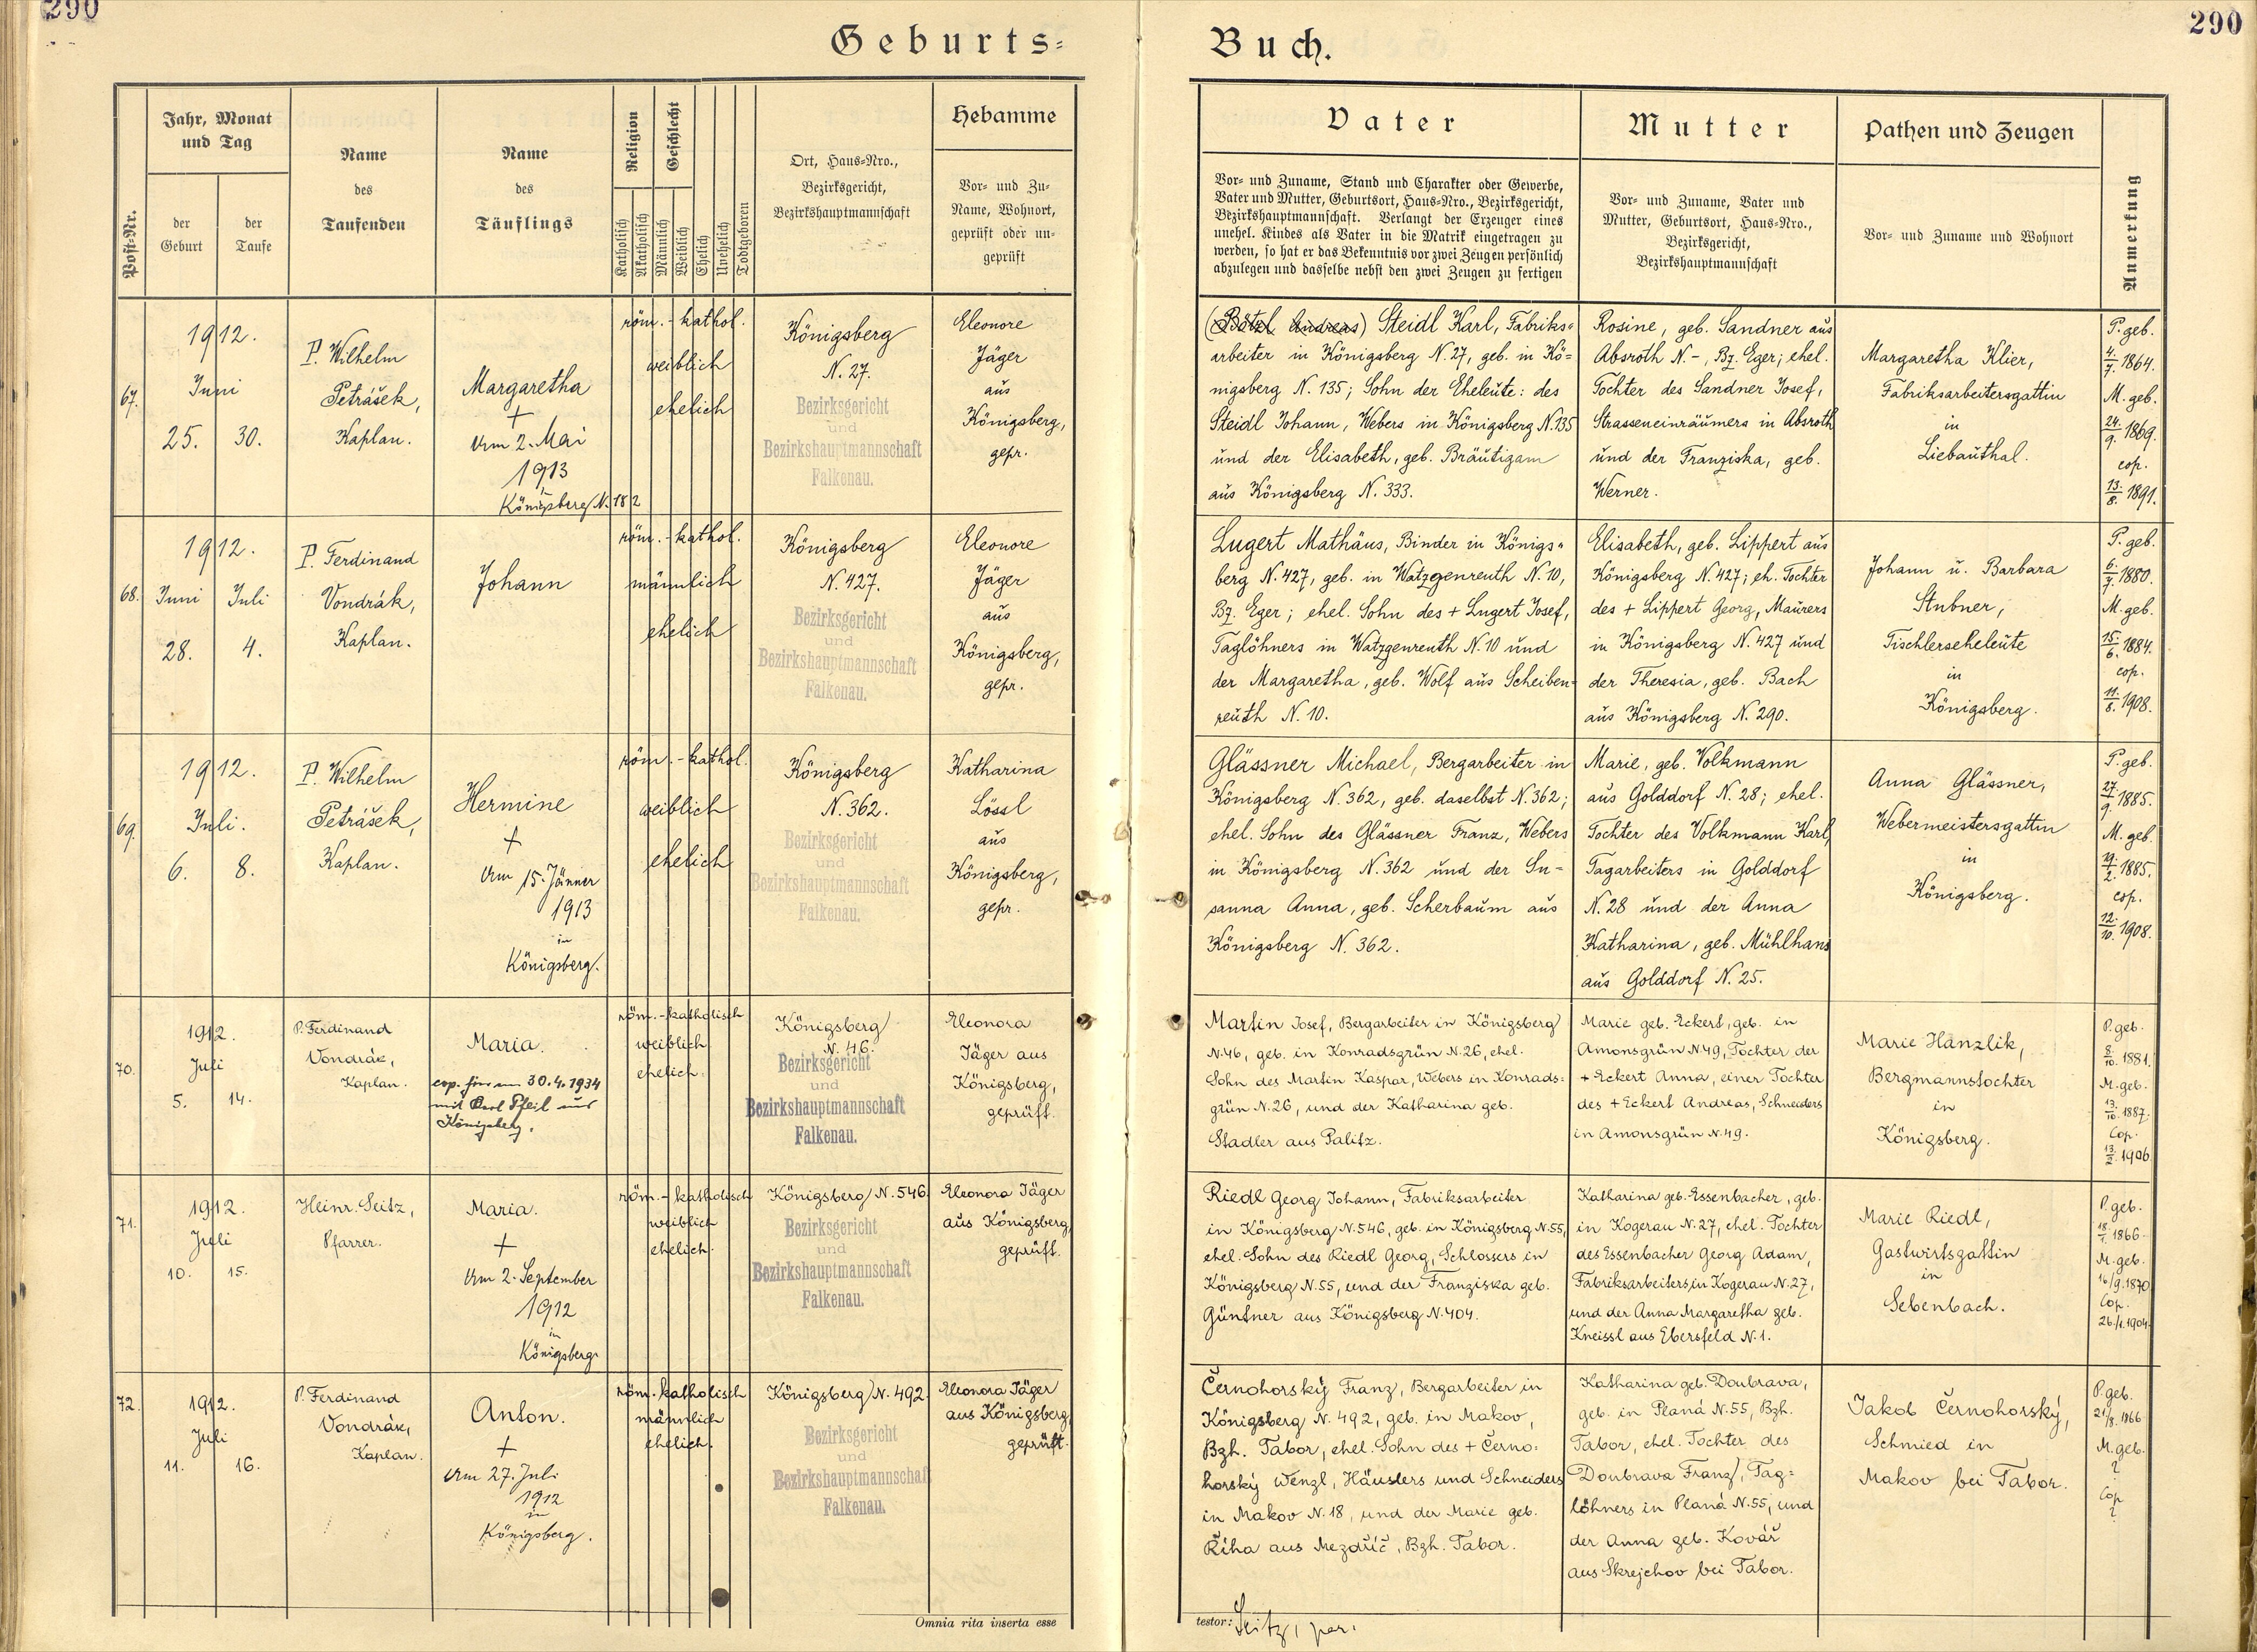 290
290
Geburts=
Buch.
Post-Nr.
Jahr, Monat
und Tag
der
Geburt
der
Taufe
Name
des
Taufenden
Name
des
Täuflings
Religion
Geschlecht
Katholisch
Akatholisch
Männlich
Weiblich
Ehelich
Unehelich
Todtgeboren
Ort, Haus-Nro.,
Bezirksgericht,
Bezirkshauptmannschaft
Hebamme
Vor- und Zu-
Name, Wohnort,
geprüft oder un-
geprüft
Vater
Vor- und Zuname, Stand und Charakter oder Gewerbe,
Vater und Mutter, Geburtsort, Haus-Nro., Bezirksgericht,
Bezirkshauptmannschaft. Verlangt der Erzeuger eines
unehel. Kindes als Vater in die Matrik eingetragen zu
werden, so hat er das Bekenntnis vor zwei Zeugen persönlich
abzulegen und dasselbe nebst den zwei Zeugen zu fertigen
Mutter
Vor- und Zuname, Vater und
Mutter, Geburtsort, Haus-Nro.,
Bezirksgericht,
Bezirkshauptmannschaft
Pathen und Zeugen
Vor- und Zuname und Wohnort
Anmerkung
67.
1912.
Juni
25. 30.
P. Wilhelm
Petrášek,
Kaplan.
Margaretha
+
Am 2. Mai
1913
Königsberg N. 182
röm.-kathol.
weiblich
ehelich
Königsberg
N. 27.
Bezirksgericht
und
Bezirkshauptmannschaft
Falkenau.
Eleonore
Jäger
aus
Königsberg,
gepr.
Andreas) Steidl Karl, Fabriks=
arbeiter in Königsberg N. 27, geb. in Kö=
nigsberg N. 135; Sohn der Eheleute: des
Steidl Johann, Webers in Königsberg N. 135
und der Elisabeth, geb. Bräutigam
aus Königsberg N. 333.
Rosine, geb. Sandner aus
Absroth N. -, Bz. Eger; ehel.
Tochter des Sandner Josef,
Strasseneinräumers in Absroth
und der Franziska, geb.
Werner.
Margaretha Klier,
Fabriksarbeitersgattin
in
Liebauthal.
P. geb.
4./7. 1864.
M. geb.
24./9. 1869.
cop.
13./8. 1891.
68.
1912.
Juni Juli
28. 4.
P. Ferdinand
Vondrák,
Kaplan.
Johann
röm.-kathol.
männlich
ehelich
Königsberg
N. 427.
Bezirksgericht
und
Bezirkshauptmannschaft
Falkenau.
Eleonore
Jäger
aus
Königsberg,
gepr.
Lugert Mathäus, Binder in Königs=
berg N. 427, geb. in Watzgenreuth N. 10,
Bz. Eger; ehel. Sohn des + Lugert Josef,
Taglöhners in Watzgenreuth N. 10 und
der Margaretha, geb. Wolf aus Scheiben=
reuth N. 10.
Elisabeth, geb. Lippert aus
Königsberg N. 427; eh. Tochter
des + Lippert Georg, Maurers
in Königsberg N. 427 und
der Theresia, geb. Bach
aus Königsberg N. 290.
Johann u. Barbara
Stubner,
Tischlerseheleute
in
Königsberg.
P. geb.
6./7. 1880.
M. geb.
15./6. 1884.
cop.
11./8. 1908.
69.
1912.
Juli.
6. 8.
P. Wilhelm
Petrášek,
Kaplan.
Hermine
+
Am 15. Jänner
1913
in
Königsberg.
röm.-kathol.
weiblich
ehelich
Königsberg
N. 362.
Bezirksgericht
und
Bezirkshauptmannschaft
Falkenau.
Katharina
Lössl
aus
Königsberg,
gepr.
Glässner Michael, Bergarbeiter in
Königsberg N. 362, geb. daselbst N. 362;
ehel. Sohn des Glässner Franz, Webers
in Königsberg N. 362 und der Su=
sanna Anna, geb. Scherbaum aus
Königsberg N. 362.
Marie, geb. Volkmann
aus Golddorf N. 28; ehel.
Tochter des Volkmann Karl,
Tagarbeiters in Golddorf
N. 28 und der Anna
Katharina, geb. Mühlhans
aus Golddorf N. 25.
Anna Glässner,
Webermeistersgattin
in
Königsberg.
P. geb.
27./9. 1885.
M. geb.
19./2. 1885.
cop.
12./10. 1908.
70.
1912.
Juli
5. 14.
P. Ferdinand
Vondrák,
Kaplan.
Maria.
cop. hier am 30.4.1934
mit Karl Pfeil aus
Königsberg.
röm.-katholisch
weiblich
ehelich.
Königsberg
N. 46.
Bezirksgericht
und
Bezirkshauptmannschaft
Falkenau.
Eleonora
Jäger aus
Königsberg,
geprüft.
Martin Josef, Bergarbeiter in Königsberg
N. 46, geb. in Konradsgrün N. 26, ehel.
Sohn des Martin Kaspar, Webers in Konrads=
grün N. 26, und der Katharina geb.
Stadler aus Palitz.
Marie geb. Eckert, geb. in
Amonsgrün N. 49, Tochter der
+ Eckert Anna, einer Tochter
des + Eckert Andreas, Schneiders
in Amonsgrün N. 49.
Marie Hanzlik,
Bergmannstochter
in
Königsberg.
P. geb.
8./10. 1881.
M. geb.
13./10. 1887.
Cop.
13./2. 1906
71.
1912.
Juli
10. 15.
Heinr. Seitz,
Pfarrer.
Maria.
+
Am 2. September
1912
in
Königsberg.
röm.-katholisch
weiblich
ehelich.
Königsberg N. 546.
Bezirksgericht
und
Bezirkshauptmannschaft
Falkenau.
Eleonora Jäger
aus Königsberg,
geprüft.
Riedl Georg Johann, Fabriksarbeiter
in Königsberg N. 546, geb. in Königsberg N. 55,
ehel. Sohn des Riedl Georg, Schlossers in
Königsberg N. 55, und der Franziska geb.
Güntner aus Königsberg N. 404.
Katharina geb. Essenbacher, geb.
in Kogerau N. 27, ehel. Tochter
des Essenbacher Georg Adam,
Fabriksarbeiters in Kogerau N. 27,
und der Anna Margaretha geb.
Kneissl aus Ebersfeld N. 1.
Marie Riedl,
Gastwirtsgattin
in
Sebenbach.
P. geb.
18./1. 1866.
M. geb.
16/9. 1870
Cop.
26./1. 1904.
72.
1912.
Juli
11. 16.
P. Ferdinand
Vondrák,
Kaplan.
Anton.
+
Am 27. Juli
1912
in
Königsberg.
röm.-katholisch
männlich
ehelich.
Königsberg N. 492.
Bezirksgericht
und
Bezirkshauptmannschaft
Falkenau.
Eleonora Jäger
aus Königsberg,
geprüft.
Černohorský Franz, Bergarbeiter in
Königsberg N. 492, geb. in Makov,
Bzh. Tabor, ehel. Sohn des + Černo=
horský Wenzl, Häuslers und Schneiders
in Makov N. 18, und der Marie geb.
Říha aus Mezdříč, Bzh. Tabor.
Katharina geb. Doubrava,
geb. in Planá N. 55, Bzh.
Tabor, ehel. Tochter des
Doubrava Franz, Tag=
löhners in Planá N. 55, und
der Anna geb. Kovář
aus Skrejchov bei Tabor.
Jakob Černohorský,
Schmied in
Makov bei Tabor.
P. geb.
21/8. 1866
M. geb.
?
Cop
?
Omnia rita inserta esse
testor: Seitz, par.